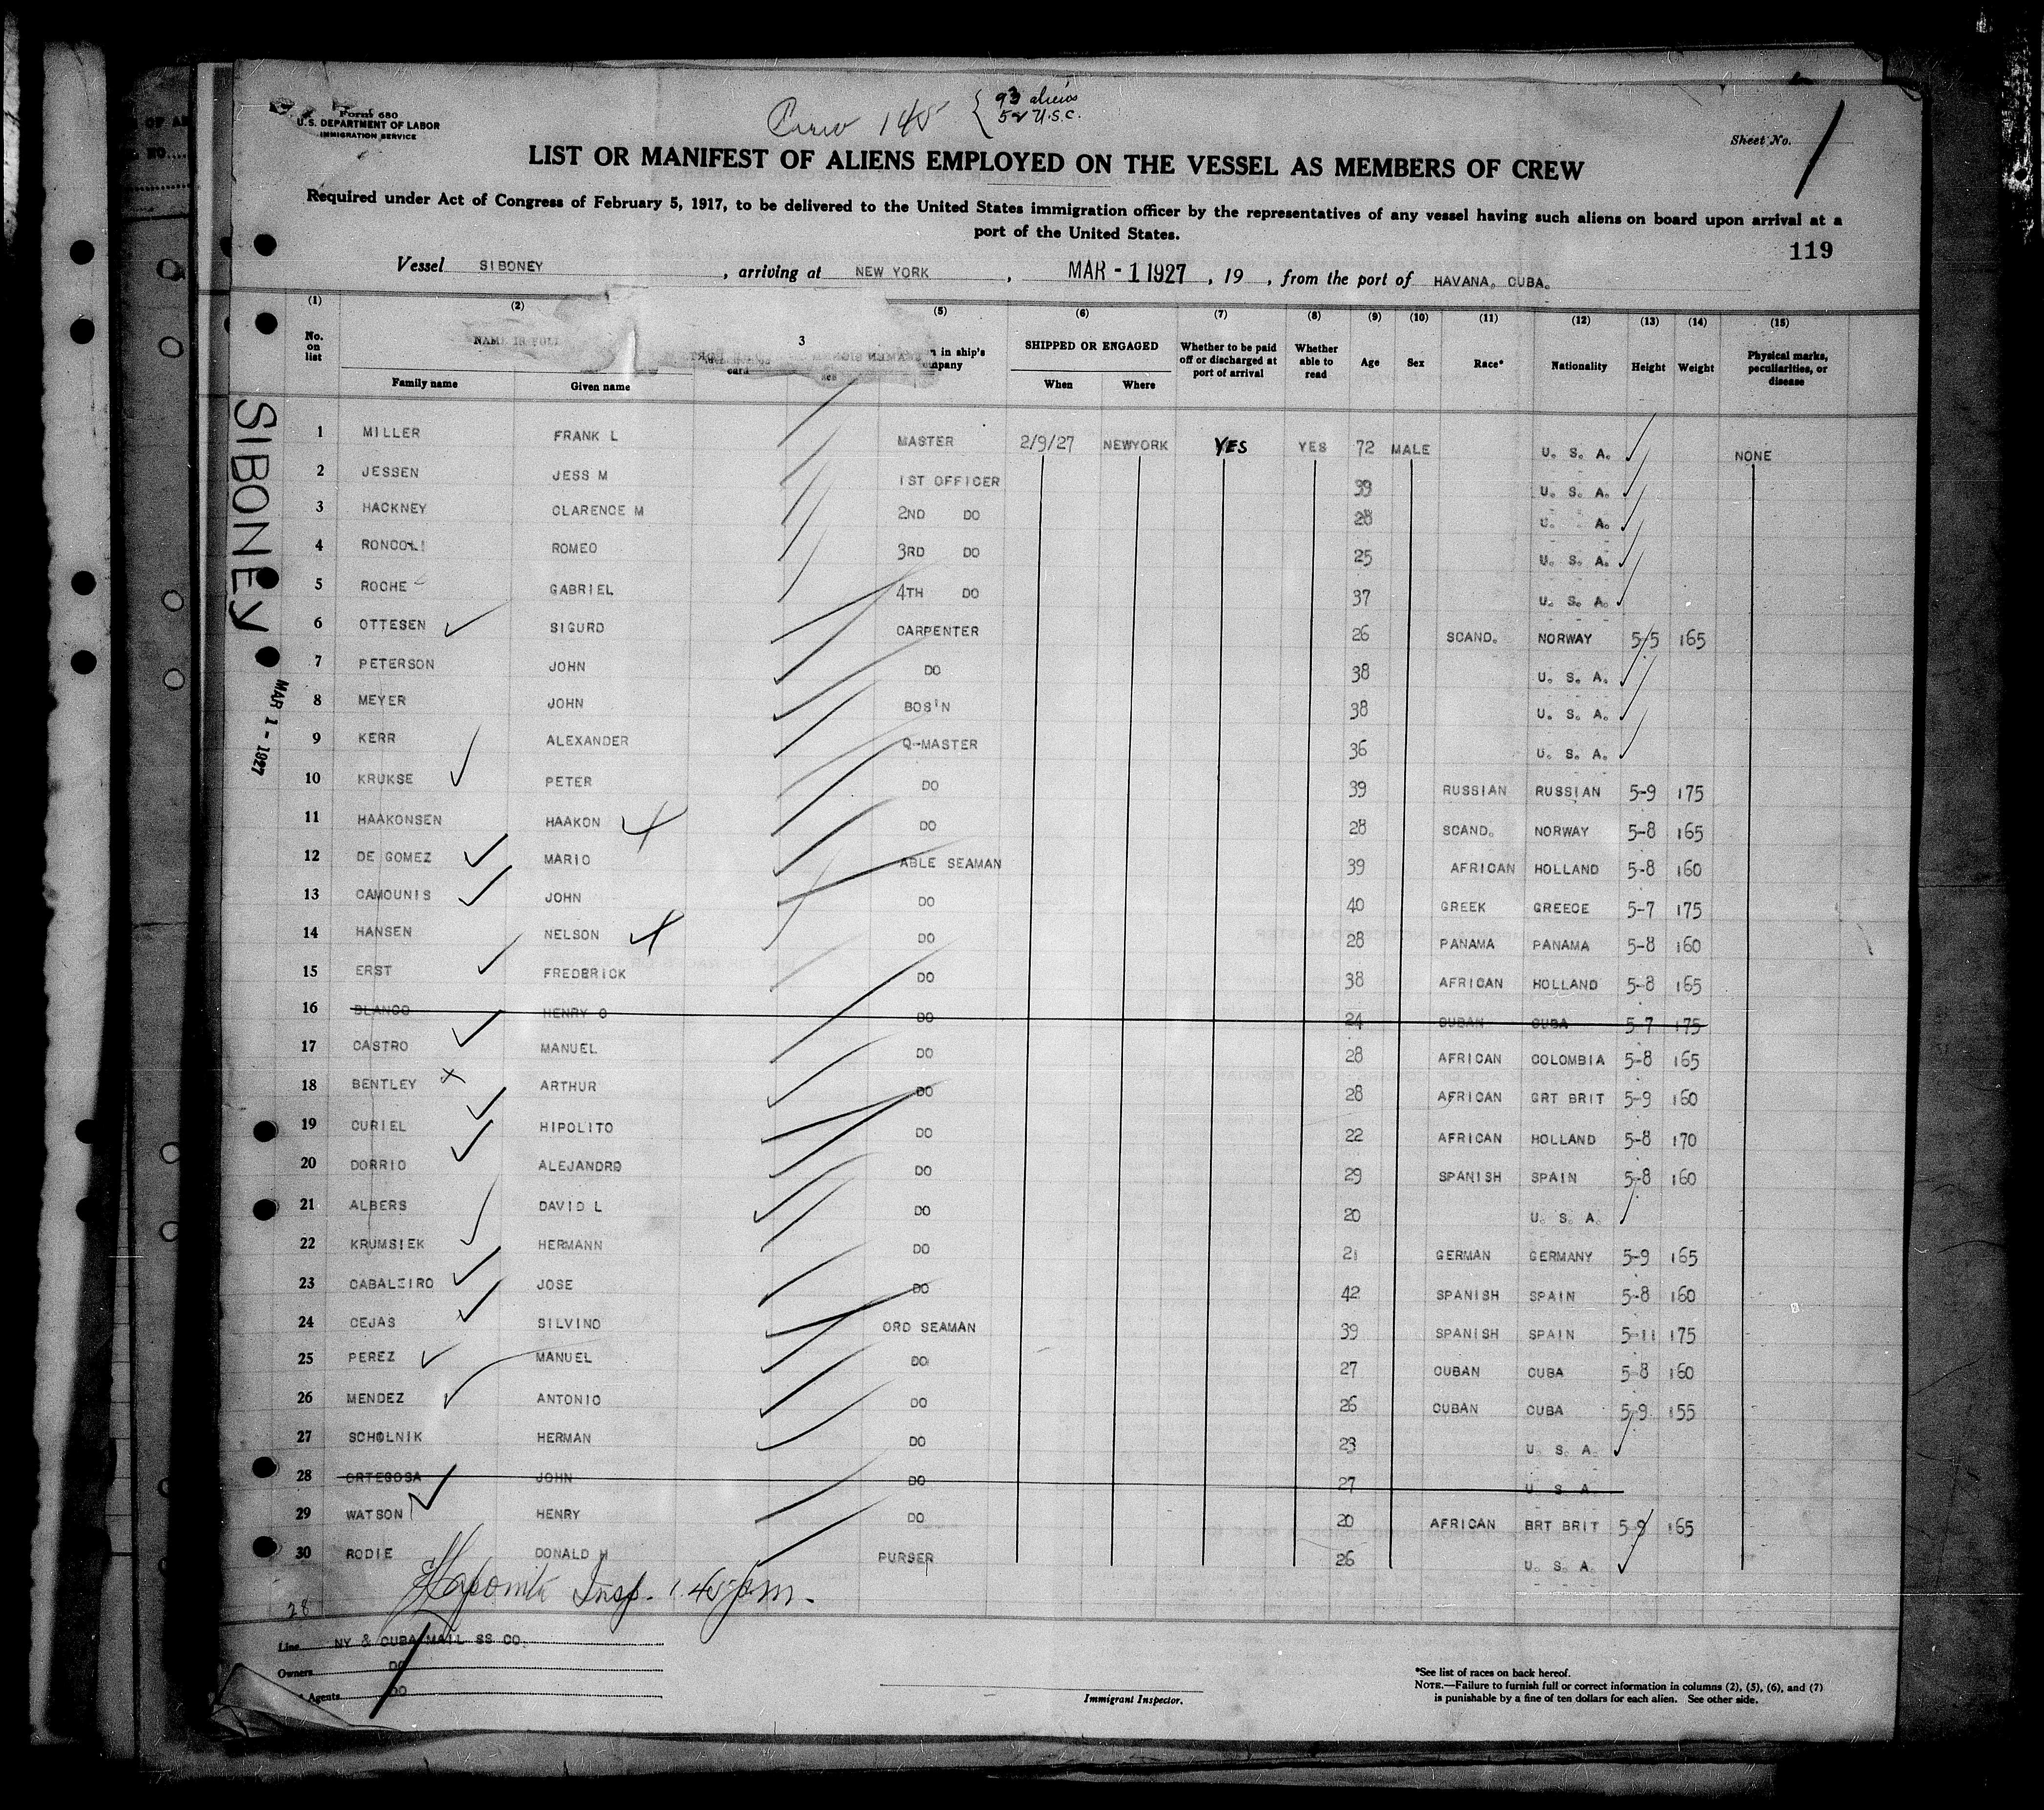 Form 680
U.S. DEPARTMENT OF LABOR
IMMIGRATION SERVICE
Crew 145 { 93 aliens
52 U.S.C.
Sheet No. 1
LIST OR MANIFEST OF ALIENS EMPLOYED ON THE VESSEL AS MEMBERS OF CREW
Required under Act of Congress of February 5, 1917, to be delivered to the United States immigration officer by the representatives of any vessel having such aliens on board upon arrival at a
port of the United States.
119
Vessel SIBONEY, arriving at NEW YORK, MAR - 1 1927, 19 , from the port of HAVANA, CUBA.
(1) (2) 3 (5) (6) (7) (8) (9) (10) (11) (12) (13) (14) (15)
No. on list NAME IN FULL Family name Given name card in ship's company SHIPPED OR ENGAGED When Where Whether to be paid off or discharged at port of arrival Whether able to read Age Sex Race* Nationality Height Weight Physical marks, peculiarities, or disease
SIBONEY
MAR 1 - 1927
1 MILLER FRANK L MASTER 2/9/27 NEWYORK YES YES 72 MALE U. S. A. NONE
2 JESSEN JESS M 1ST OFFICER 39 U. S. A.
3 HACKNEY CLARENCE M 2ND DO 28 U. A.
4 RONCOLI ROMEO 3RD DO 25 U. S. A.
5 ROCHE GABRIEL 4TH DO 37 U. S. A.
6 OTTESEN SIGURD CARPENTER 26 SCAND. NORWAY 5-5 165
7 PETERSON JOHN DO 38 U. S. A.
8 MEYER JOHN BOS'N 38 U. S. A.
9 KERR ALEXANDER Q-MASTER 36 U. S. A.
10 KRUKSE PETER DO 39 RUSSIAN RUSSIAN 5-9 175
11 HAAKONSEN HAAKON DO 28 SCAND. NORWAY 5-8 165
12 DE GOMEZ MARIO ABLE SEAMAN 39 AFRICAN HOLLAND 5-8 160
13 CAMOUNIS JOHN DO 40 GREEK GREECE 5-7 175
14 HANSEN NELSON DO 28 PANAMA PANAMA 5-8 160
15 ERST FREDERICK DO 38 AFRICAN HOLLAND 5-8 165
16 BLANCO HENRY O DO 24 CUBAN CUBA 5-7 175
17 CASTRO MANUEL DO 28 AFRICAN COLOMBIA 5-8 165
18 BENTLEY ARTHUR DO 28 AFRICAN GRT BRIT 5-9 160
19 CURIEL HIPOLITO DO 22 AFRICAN HOLLAND 5-8 170
20 DORRIO ALEJANDRO DO 29 SPANISH SPAIN 5-8 160
21 ALBERS DAVID L DO 20 U. S. A.
22 KRUMSIEK HERMANN DO 21 GERMAN GERMANY 5-9 165
23 CABALEIRO JOSE DO 42 SPANISH SPAIN 5-8 160
24 CEJAS SILVINO ORD SEAMAN 39 SPANISH SPAIN 5-11 175
25 PEREZ MANUEL DO 27 CUBAN CUBA 5-8 160
26 MENDEZ ANTONIO DO 26 CUBAN CUBA 5-9 155
27 SCHOLNIK HERMAN DO 23 U. S. A.
28 ORTEGOSA JOHN DO 27 U S A.
29 WATSON HENRY DO 20 AFRICAN BRT BRIT 5-9 165
30 RODIE DONALD H PURSER 26 U. S. A.
Insp. 1.45 pm.
28
Line NY & CUBA MAIL SS CO.
Owners DO
Agents DO
Immigrant Inspector.
*See list of races on back hereof.
NOTE.—Failure to furnish full or correct information in columns (2), (5), (6), and (7)
is punishable by a fine of ten dollars for each alien. See other side.